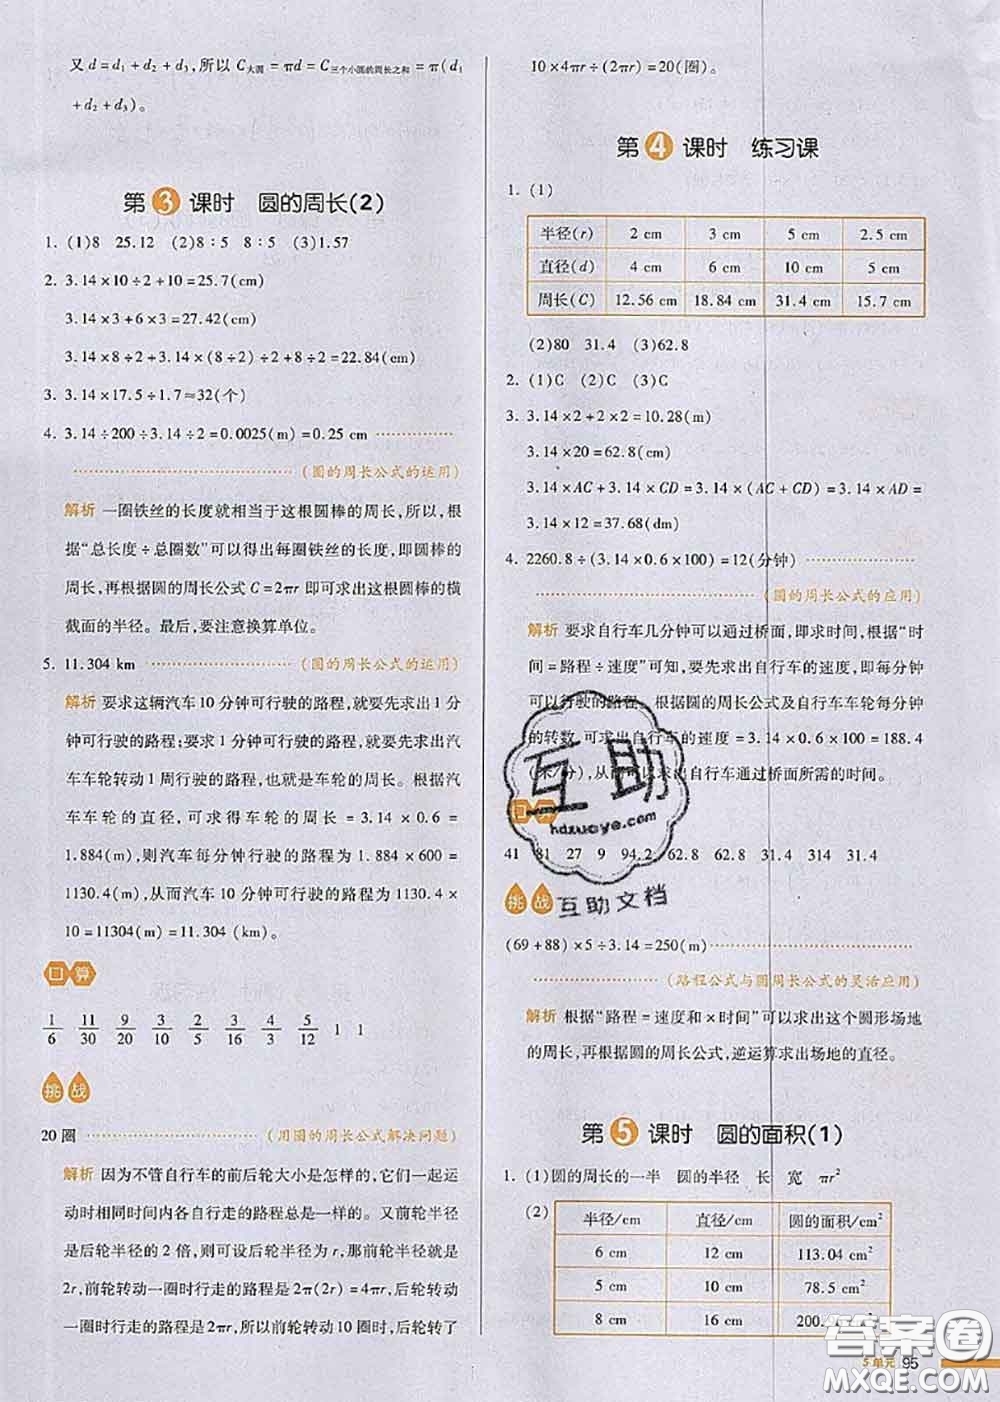 又 d=d₁+d₂+d₃,所以 C大圆=πd=C三个小圆的周长之和=π(d₁
+d₂+d₃)。
第3课时 圆的周长(2)
1. (1)8 25.12 (2)8∶5 8∶5 (3)1.57
2. 3.14×10÷2+10=25.7(cm)
3.14×3+6×3=27.42(cm)
3.14×8÷2+3.14×(8÷2)÷2+8÷2=22.84(cm)
3. 3.14×17.5÷1.7≈32(个)
4. 3.14÷200÷3.14÷2=0.0025(m)=0.25 cm
(圆的周长公式的运用)
解析 一圈铁丝的长度就相当于这根圆棒的周长,所以,根
据“总长度÷总圈数”可以得出每圈铁丝的长度,即圆棒的
周长,再根据圆的周长公式 C=2πr 即可求出这根圆棒的横
截面的半径。最后,要注意换算单位。
5. 11.304 km (圆的周长公式的运用)
解析 要求这辆汽车10分钟可行驶的路程,就要先求出1分
钟可行驶的路程;要求1分钟可行驶的路程,就要先求出汽
车车轮转动1周行驶的路程,也就是车轮的周长。根据汽
车车轮的直径,可求得车轮的周长=3.14×0.6=
1.884(m),则汽车每分钟行驶的路程=1.884×600=
1130.4(m),从而汽车10分钟可行驶的路程=1130.4×
10=11304(m)=11.304 (km)。
口算
1/6 11/30 9/20 3/10 2/9 3/4 3/4 5/12 1 1
挑战
20圈 (用圆的周长公式解决问题)
解析 因为不管自行车的前后轮大小是怎样的,它们一起运
动时相同时间内各自行走的路程总是一样的。又前轮半径
是后轮半径的2倍,则可设后轮半径为r,那前轮半径就是
2r,前轮转动一圈时行走的路程是2π(2r)=4πr,后轮转动
一圈时行走的路程是2πr,所以前轮转动10圈时,后轮转了
10×4πr÷(2πr)=20(圈)。
第4课时 练习课
1. (1)
半径(r) 2 cm 3 cm 5 cm 2.5 cm
直径(d) 4 cm 6 cm 10 cm 5 cm
周长(C) 12.56 cm 18.84 cm 31.4 cm 15.7 cm
(2)80 31.4 (3)62.8
2. (1)C (2)C (3)C
3. 3.14×2+2×2=10.28(m)
3.14×20=62.8(m)
3.14×AC+3.14×CD=3.14×(AC+CD)=3.14×AD=
3.14×12=37.68(dm)
4. 2260.8÷(3.14×0.6×100)=12(分钟)
(圆的周长公式的应用)
解析 要求自行车几分钟可以通过桥面,即求时间,根据“时
间=路程÷速度”可知,要先求出自行车的速度,即每分钟
可以行驶的路程。根据圆的周长公式及自行车车轮每分钟
的转数,可求出自行车的速度=3.14×0.6×100=188.4
(米/分),从而可以求出自行车通过桥面所需的时间。
口算
41 81 27 9 94.2 62.8 62.8 31.4 314 31.4
挑战
(69+88)×5÷3.14=250(m)
(路程公式与圆周长公式的灵活应用)
解析 根据“路程=速度和×时间”可以求出这个圆形场地
的周长,再根据圆的周长公式,逆运算求出场地的直径。
第5课时 圆的面积(1)
1. (1)圆的周长的一半 圆的半径 长 宽 πr²
(2)
半径/cm 直径/cm 圆的面积/cm²
6 cm 12 cm 113.04 cm²
5 cm 10 cm 78.5 cm²
8 cm 16 cm 200.
5单元 95
互助
hdzuoye.com
互助文档
答案圈
MXQE.COM